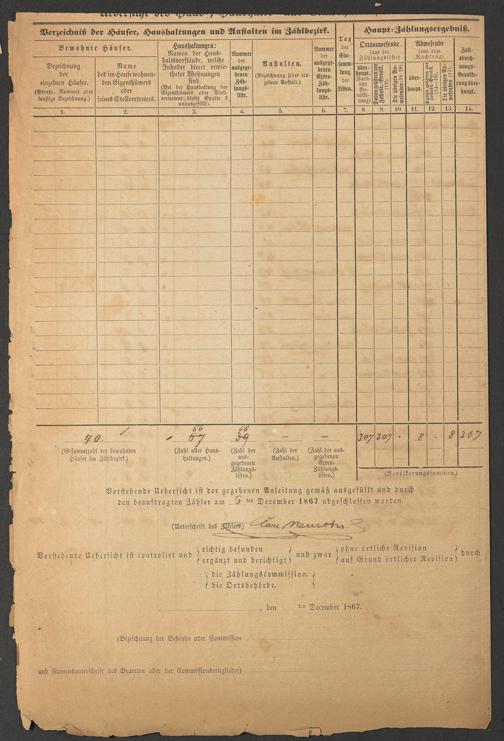 Verzeichniß der Häuser, Haushaltungen und Anstalten im Zählbezirk.
Haupt-Zählungsergebniß.
Bewohnte Häuser.
Bezeichnung
der
einzelnen Häuser.
(Straße, Nummer oder
sonstige Bezeichnung.)
Name
des im Hause wohnen-
den Eigenthümers
oder
seines Stellvertreters.
Haushaltungen:
Namen der Haus-
haltsvorstände, welche
Inhaber direct ermie-
theter Wohnungen
sind.
(Bei der Haushaltung des
Eigenthümers oder Stell-
vertreters, bleibt Spalte 3
unausgefüllt.)
Nummer
der
ausgege-
benen
Zäh-
lungs-
liste.
Anstalten.
(Bezeichnung jeder ein-
zelnen Anstalt.)
Nummer
der
ausgege-
benen
Extra-
Zäh-
lungs-
liste.
Tag
der
Ein-
samm-
lung
der
Listen.
Ortsanwesende.
(aus der
Zählungsliste)
Abwesende
(aus dem
Nachtrag)
über-
haupt.
Zoll-
abrech-
nungs-
Bevölke-
rung
überhaupt.
1. 2. 3. 4. 5. 6. 7. 8. 9. 10. 11. 12. 13. 14.
66 66
40. 67 39 — — 307 307 8 8 307
(Gesammtzahl der bewohnten
Häuser im Zählbezirk.)
(Zahl aller Haus-
haltungen.)
(Zahl der
aus-
gegebenen
Zählungs-
listen.)
(Zahl der
Anstalten.)
(Zahl der aus-
gegebenen
Extra-
Zählungs-
listen.)
(Bevölkerungssummen.)
Vorstehende Uebersicht ist der gegebenen Anleitung gemäß ausgefüllt und durch
den beauftragten Zähler am 5 ten December 1867 abgeschlossen worden.
(Unterschrift des Zählers)
Vorstehende Uebersicht ist controlirt und
richtig befunden
ergänzt und berichtigt
und zwar
ohne örtliche Revision
auf Grund örtlicher Revision
durch
die Zählungscommission.
die Ortsbehörde.
, den ten December 1867.
(Bezeichnung der Behörde oder Commission
und Namensunterschrift des Beamten oder der Commissionsmitglieder)